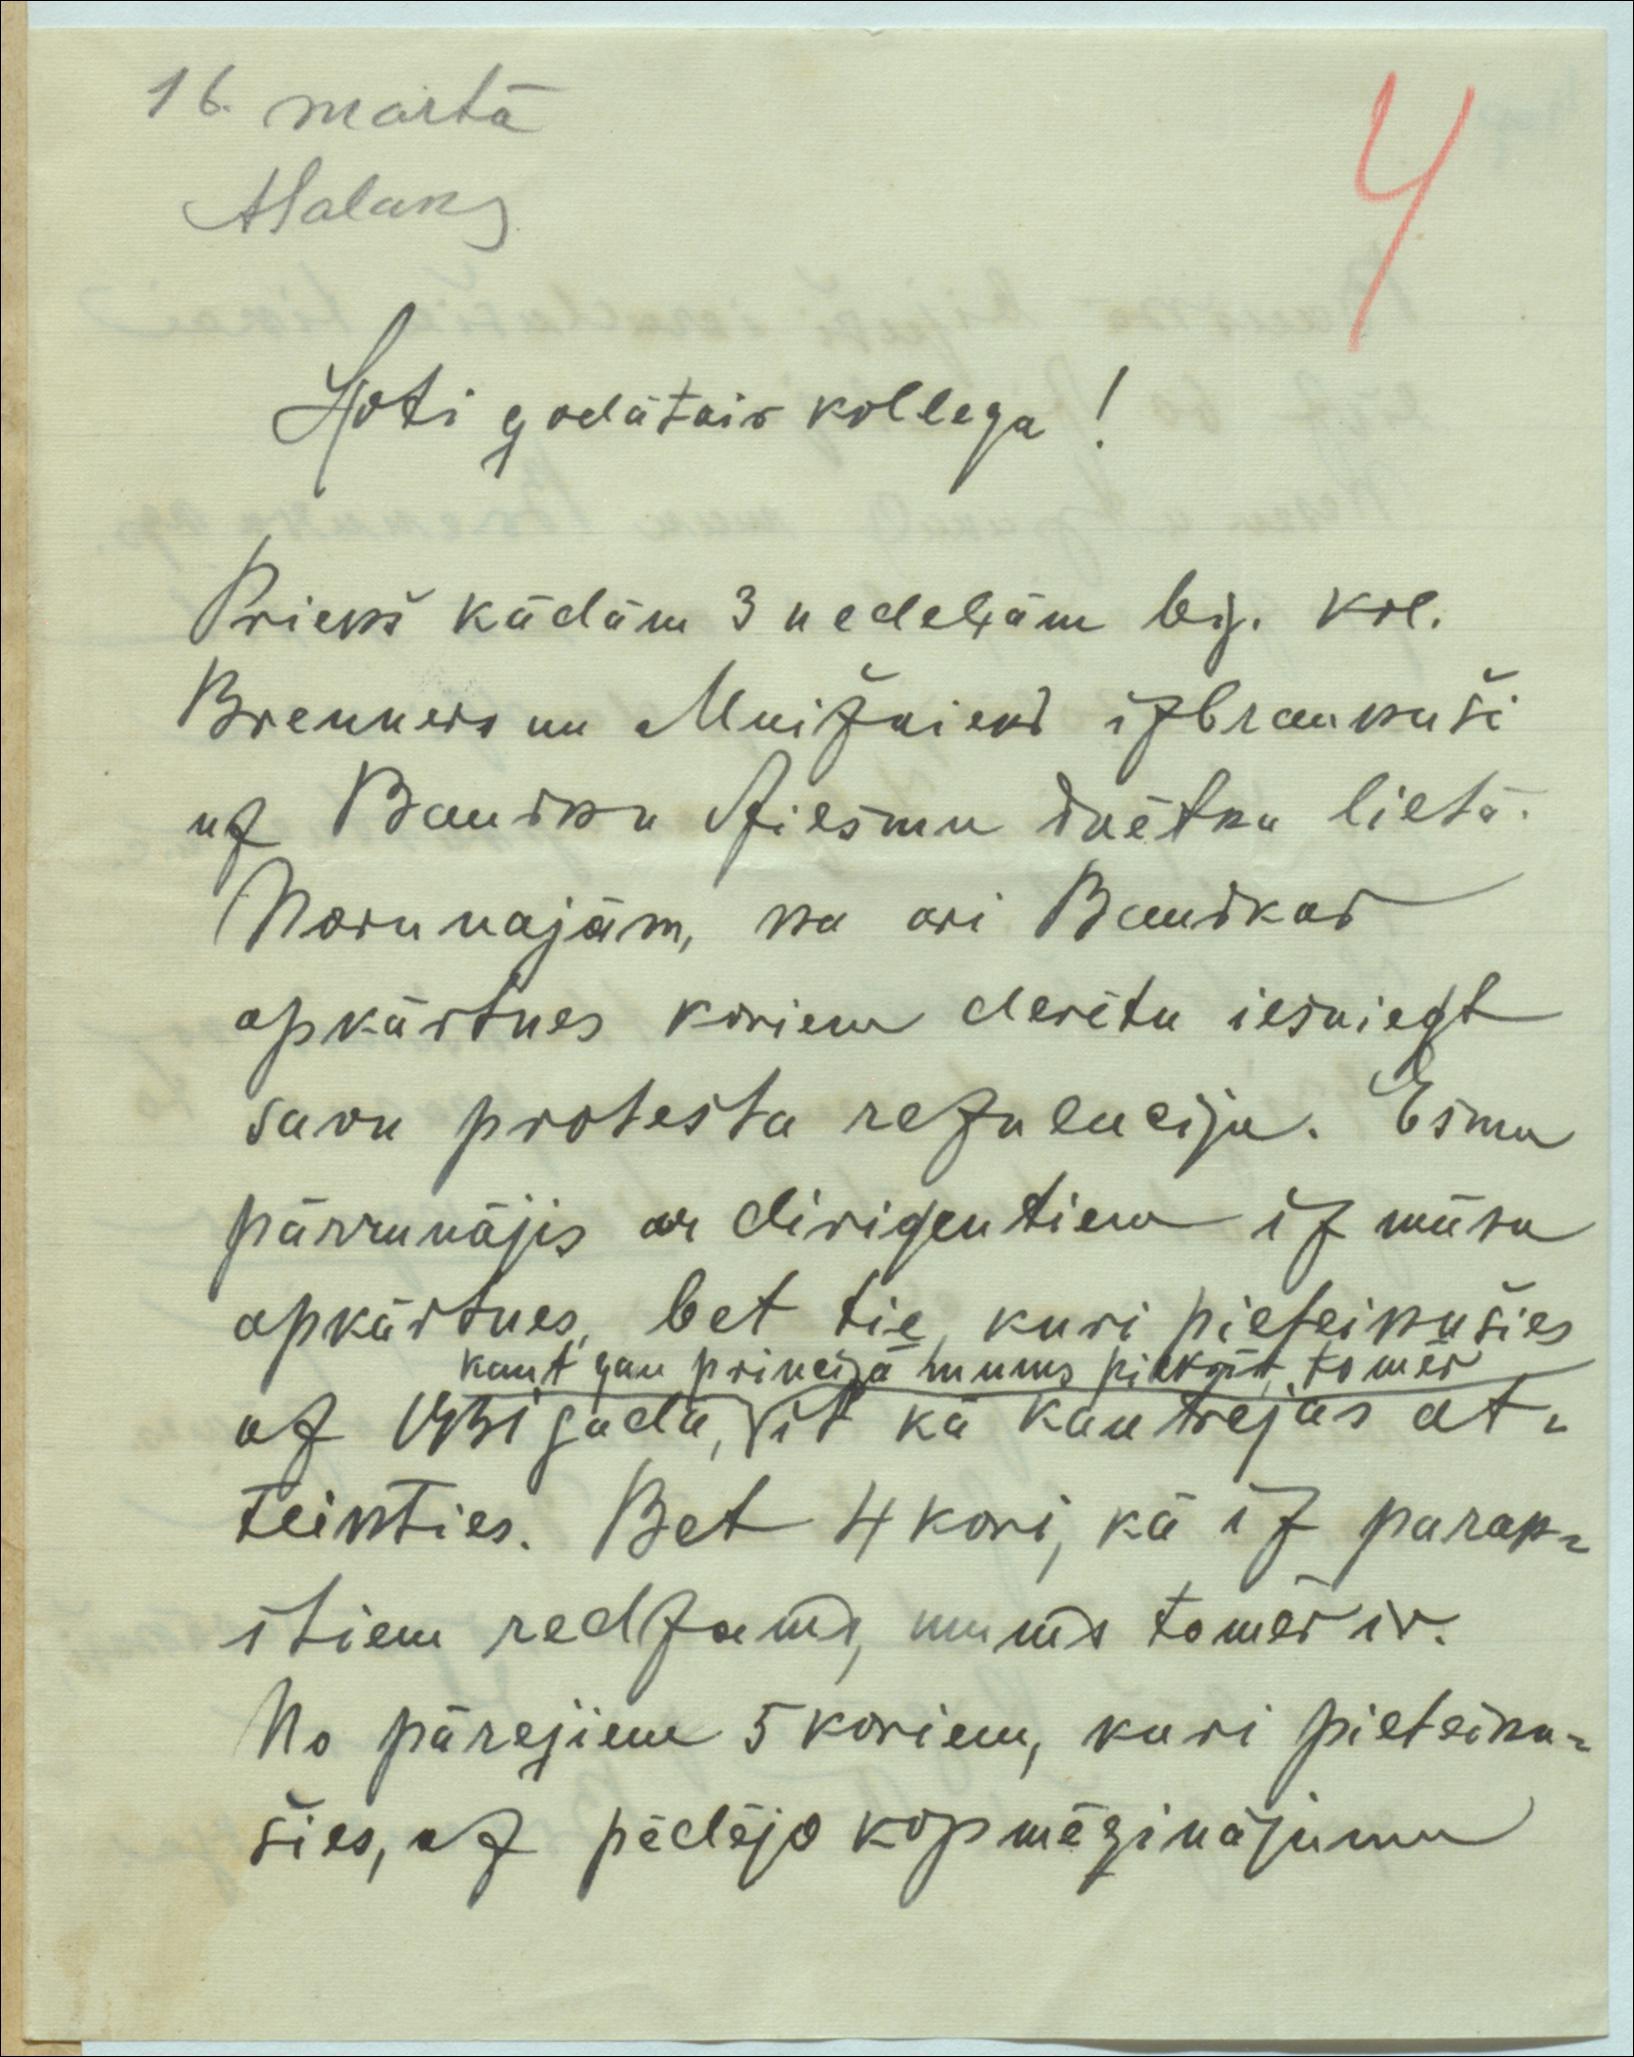 16. martā
4
Ļoti godātais kollega!
Priekš kādām 3 nedeļām bij. kol.
Brenners un Muižnieks izbraukuši
uz Bausku dziesmu svētku lietā.
Norunajām, ka ari Bauskas
apkārtnes koriem derētu iesniegt
savu protesta rezuluciju. Esmu
pārrunājis ar dirigentiem iz mūsu
apkārtnes, bet tie, kuri pieteikušies
kaut gan principā mums piekrīt, tomēr
uz 1931 gadu, it kā kautrejas at-
teikties. Bet 4 kori, kā iz parak-
stiem redzams, mums tomēr ir.
No pārejiem 5 koriem, kuri pieteiku-
šies, uz pēdējo kopmēģinājumu